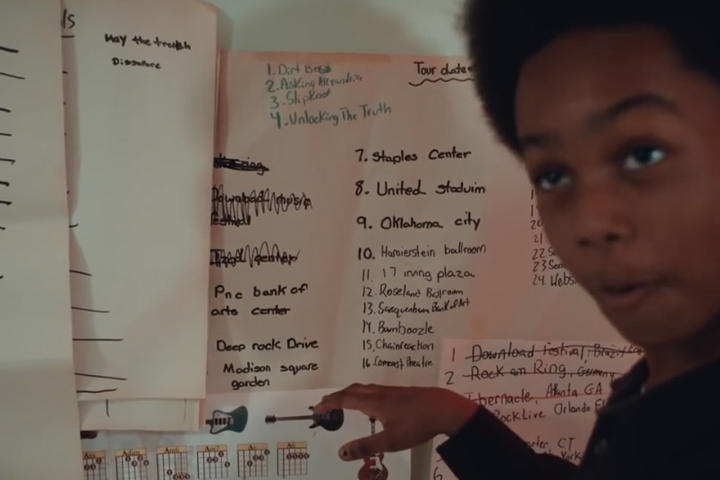 May the truth
Dissolve
1. Dirt Bess
2. Asking Alexandria
3. Slipknot
4. Unlocking The Truth
Tour dates
Pnc bank of
arts center
Deep rock Drive
Madison square
garden
7. Staples Center
8. United staduim
9. Oklahoma city
10. Hamerstein ballroom
11. 17 irving plaza
12. Roseland Ballroom
13. Bank of Art
14. Bamboozle
15. Chainreaction
16. Comcast theatre
21
22. S
23 Son
24. Webs
1 Download Festival, Brazil
2 Rock on Ring, Germany
Tabernacle, Atlanta GA
Rock Live Orlando FL
CT
York